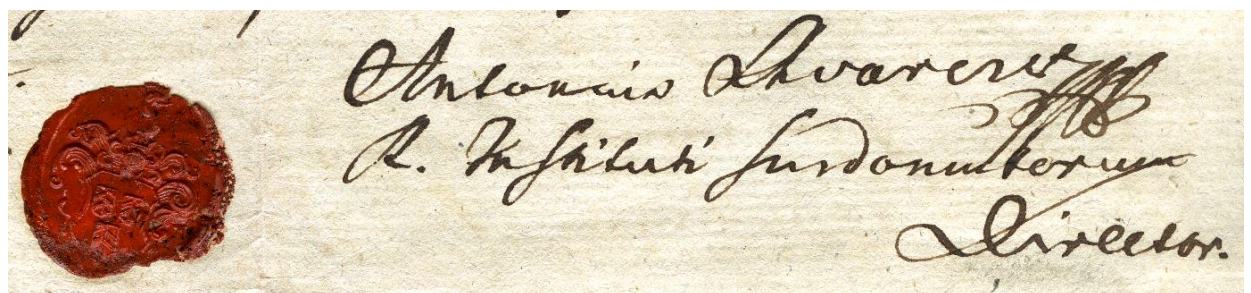 Antonius Schwarczer
R. Instituti surdomutorum
Director.